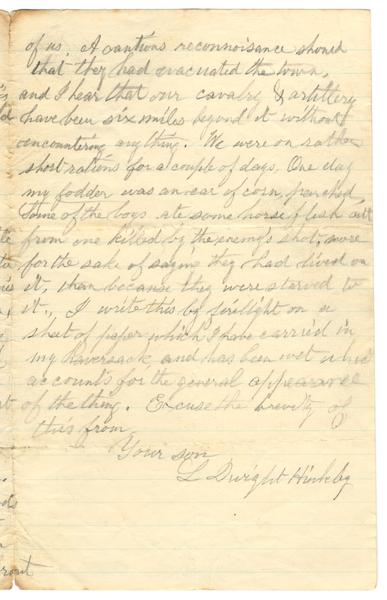 of us. A cautious reconnoisance showed
that they had evacuated the town,
and I hear that our cavalry & artillery
have been six miles beyond it without
encountering anything. We were on rather
short rations for a couple of days. One day
my fodder was an ear of corn, parched,
some of the boys ate some horse flesh cut
from one killed by the enemy's shot, more
for the sake of saying they had lived on
it, than because they were starved to
it. I write this by firelight on a
sheet of paper which I have carried in
my haversack, and has been wet which
accounts for the general appearance
of the thing. Excuse the brevity of
this from
Your son
L Dwight